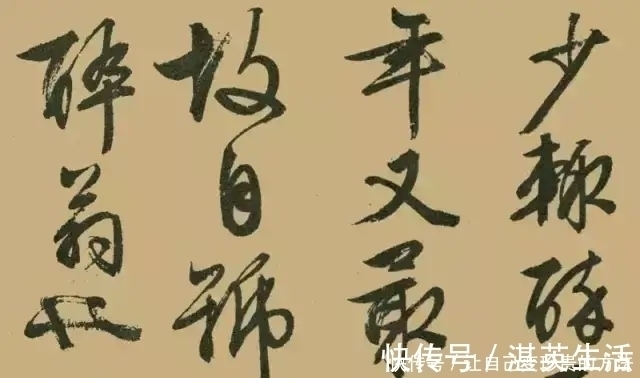 少輒醉
年又最
故自號
醉翁也
快传号 / 湛英生活